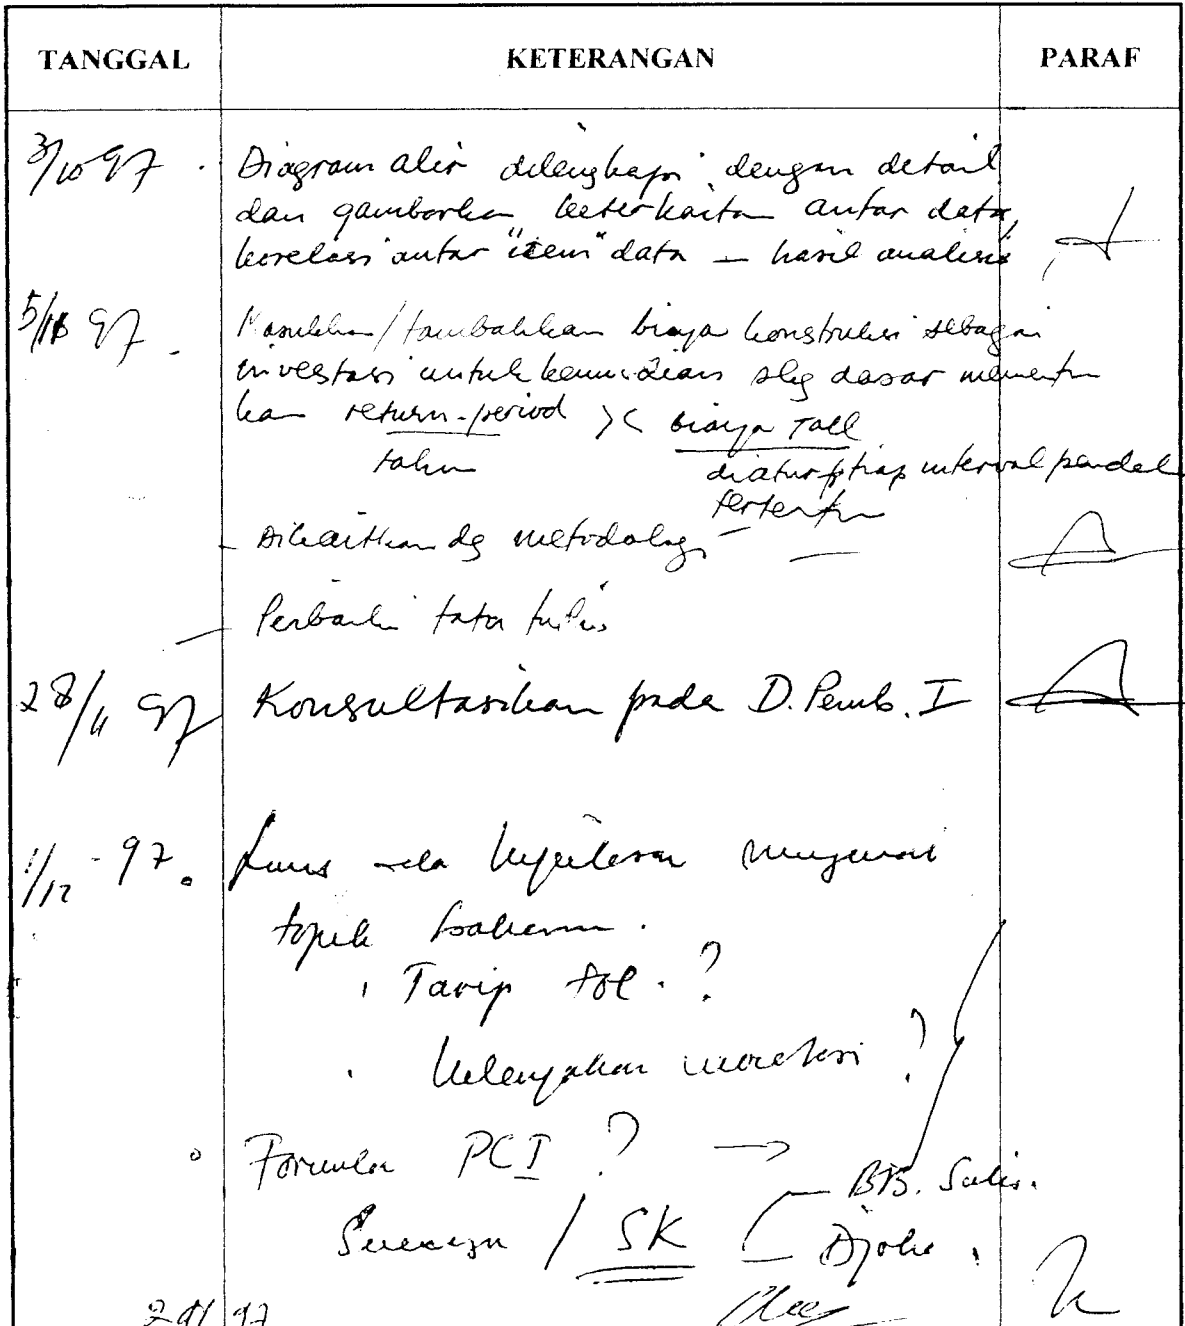 TANGGAL KETERANGAN PARAF
3/10 97 . Diagram alir dilengkapi dengan detail
dan gambarkan keterkaitan antar data,
korelasi antar "item" data – hasil analisis
5/11 97 . Masukkan/tambahkan biaya konstruksi sebagai
investasi untuk kemudian sbg dasar menentu
kan return-period >< biaya Toll
tahun diatur tiap interval pendek
tertentu
- Dikaitkan dg metodologi
- Perbaiki tata tulis
28/11 97 Konsultasikan pada D. Pemb. I
1/12 - 97 . ada mengenai
topik
. Tarip tol . ?
. ?
Formula PCI ? →
/ SK BB. Salis.
Djoko .
97